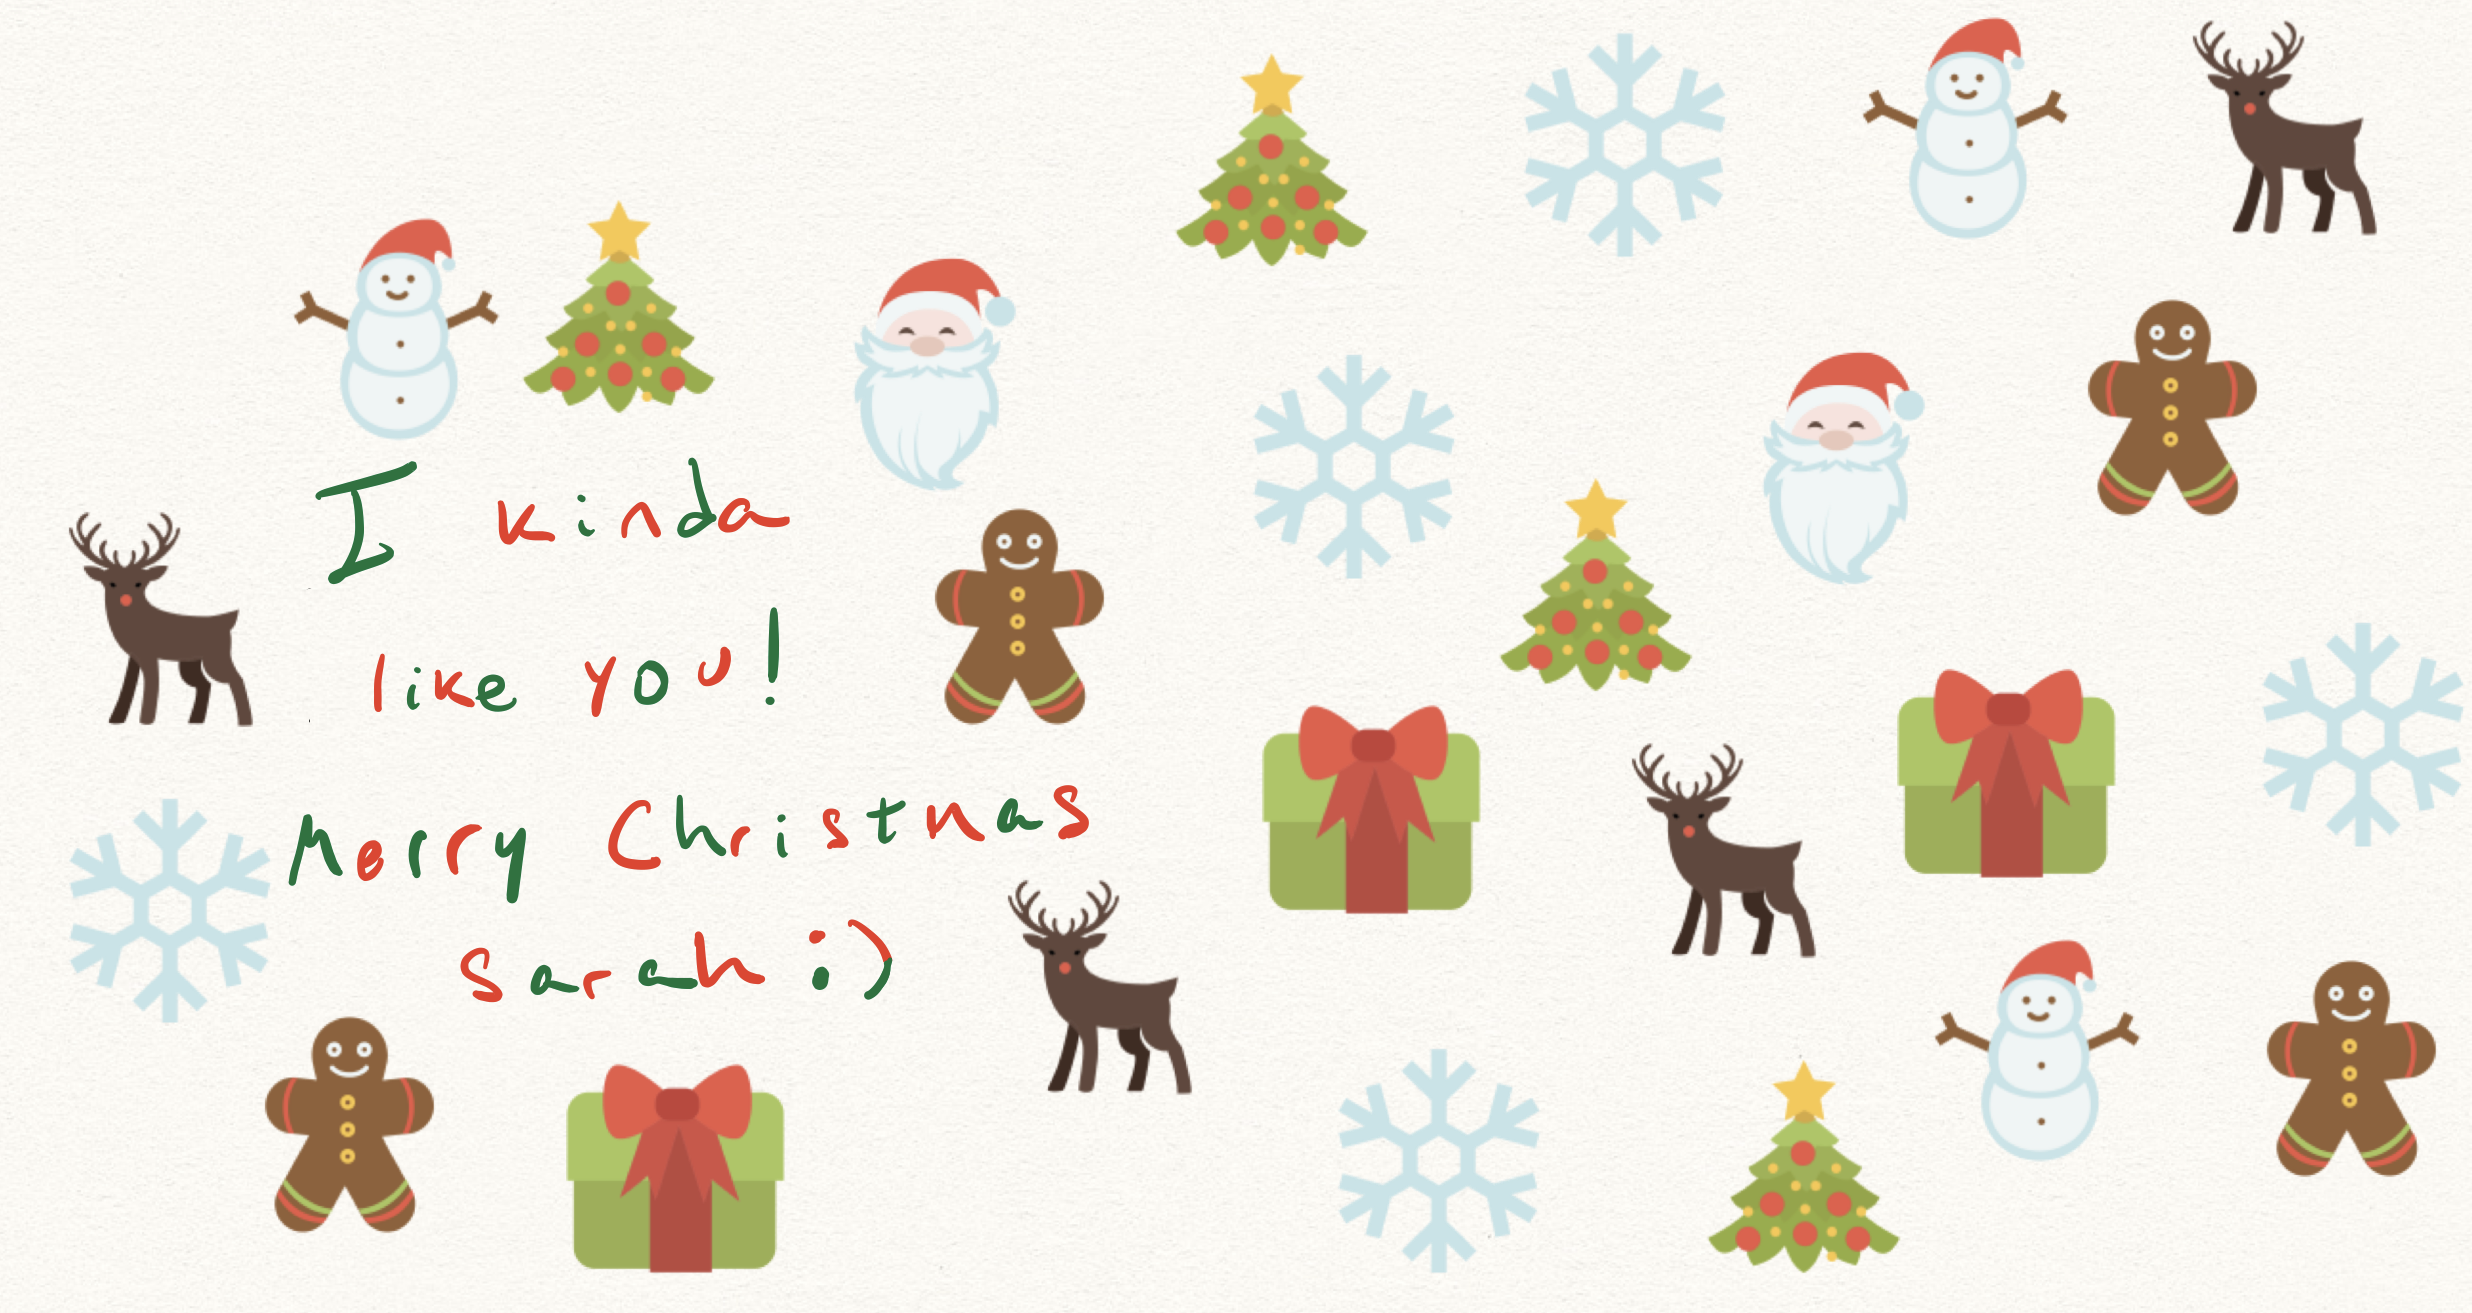 I kinda
like you!
Merry Christmas
Sarah :)